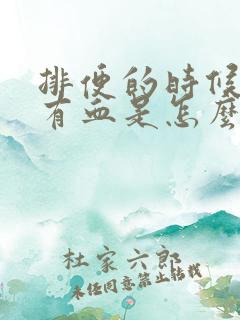 排便的时候
有血是怎么
杜家六郎
未经同意禁止转载